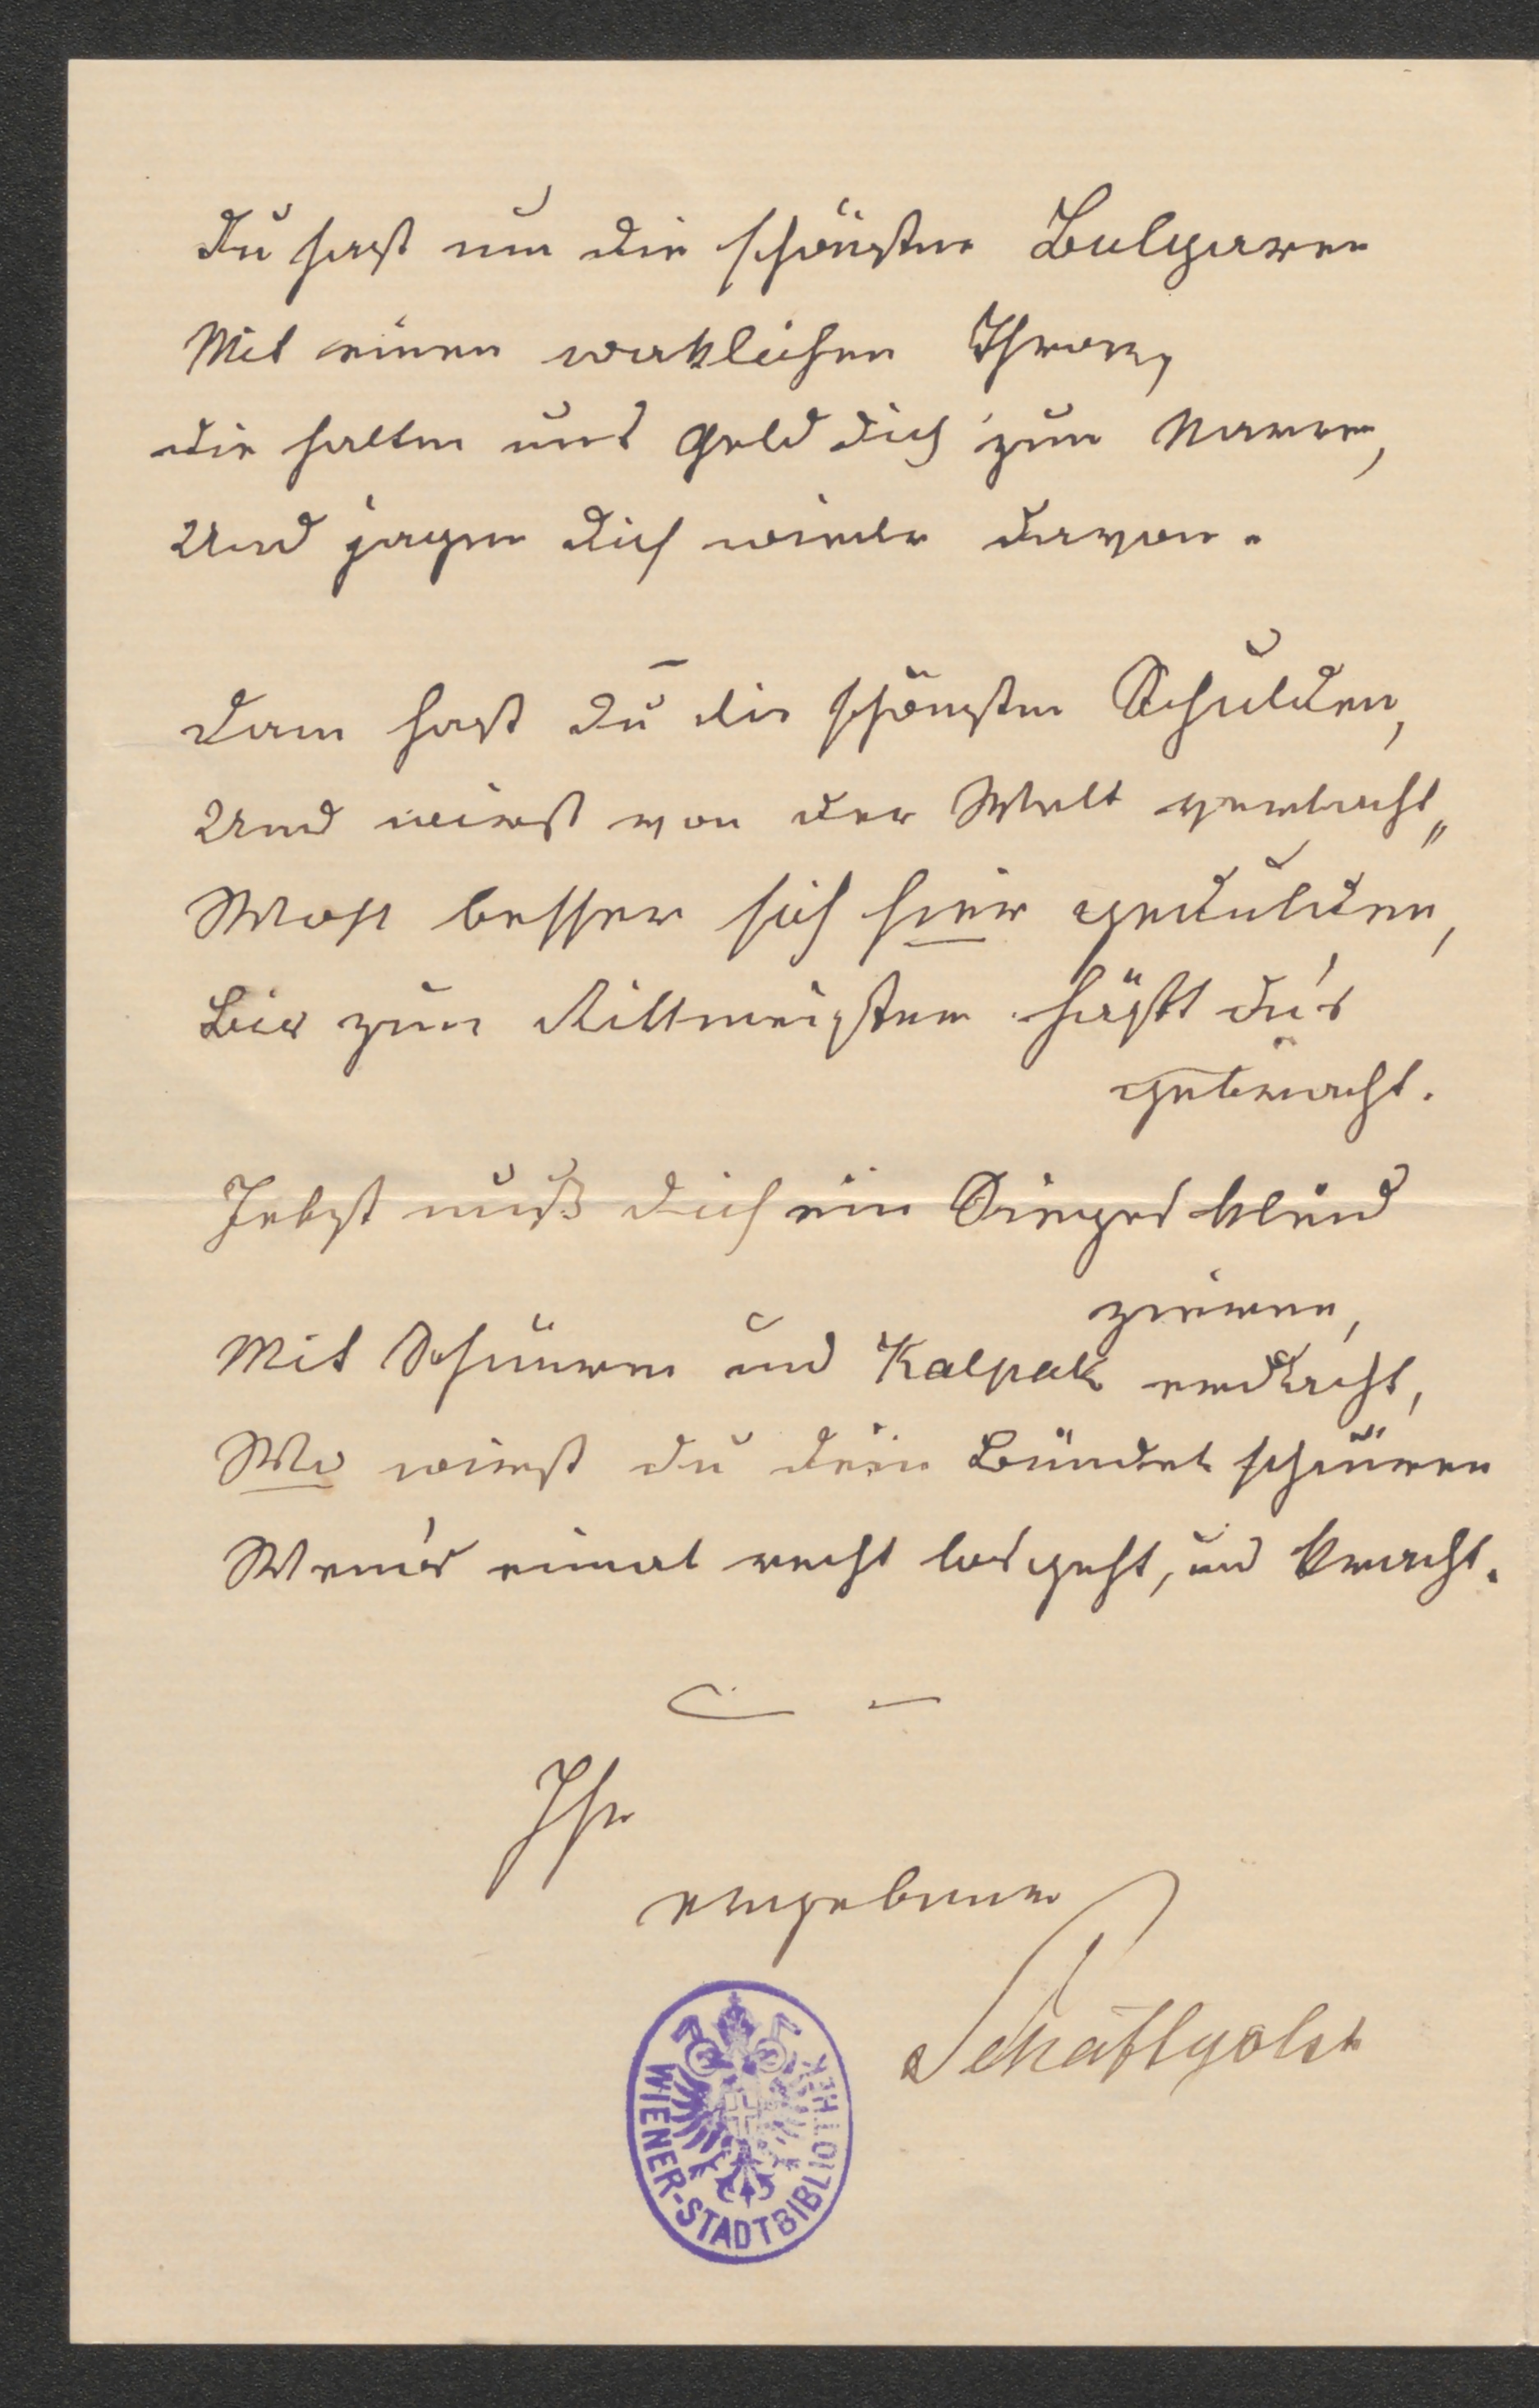 Du hast nun die schönsten Bulgaren
Mit einen wacklichen Thron,
die halten ums Geld dich zum Narren,
Und jagen dich wieder davon.
Dann hast du die schönsten Schulden,
Und wirst von der Welt verlacht,
Wohl besser sich hier gedulden,
Bis zum Rittmeister hättst du's
gebracht.
Jetzt muß dich ein Siegeskleid
zieren,
Mit Schnüren und Kalpak erdacht,
Wo wirst du dein Bündel schnüren
Wenn's einmal recht losgeht, und kracht.
Ihr
ergebener
WIENER-STADTBIBLIOTHEK